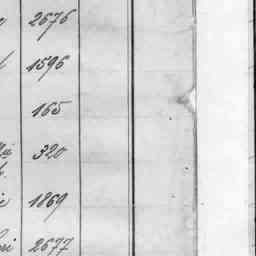 2676
1596
165
320
1869
2677